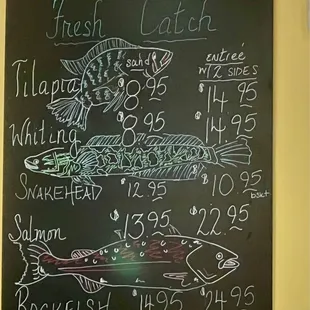 Fresh Catch
sand entrée
W/2 SIDES
Tilapia $8.95 $14.95
Whiting $8.95 $14.95
SNAKEHEAD $12.95 $10.95
bskt
Salmon $13.95 $22.95
ROCKFISH $14.95 $24.95